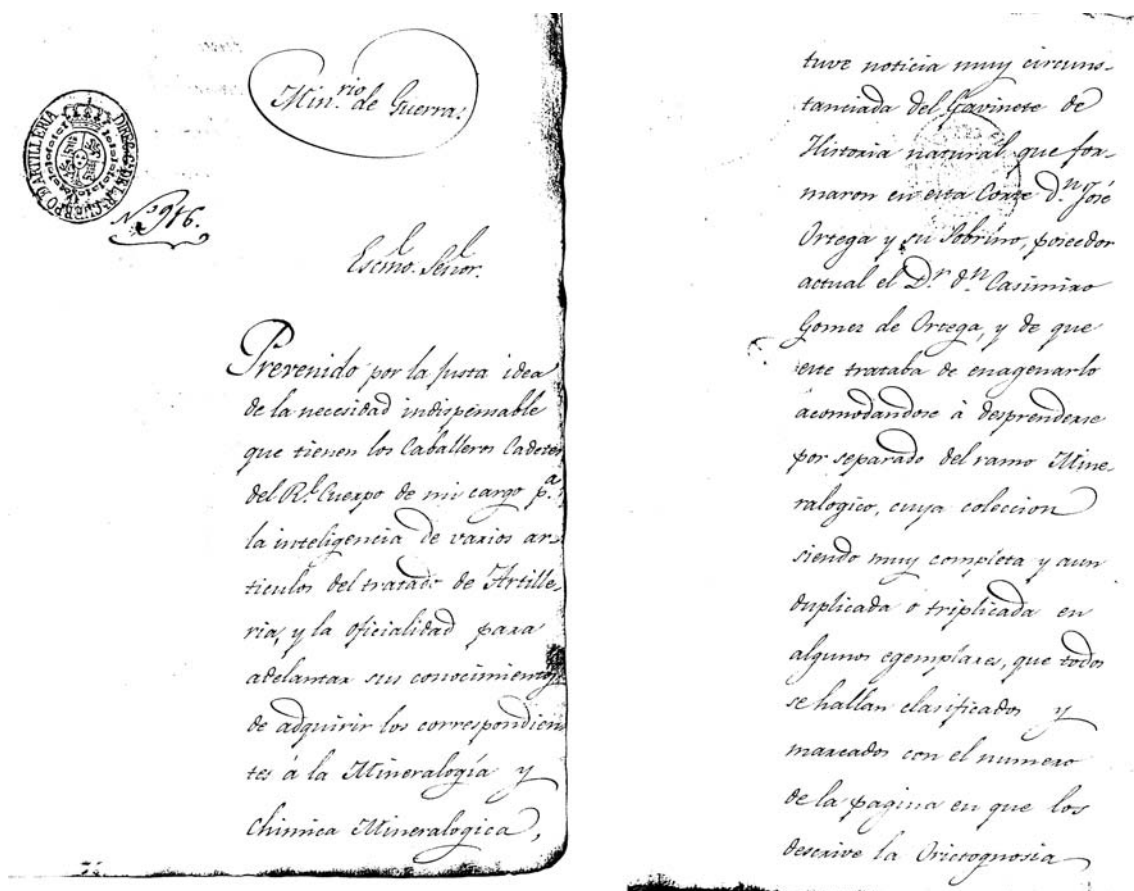 Min.rio de Guerra.
DIREC.G. DE LR. CUERPO D ARTILLERIA
N.º 916.
Escmo. Señor.
Prevenido por la justa idea
de la necesidad indispensable
que tienen los Caballeros Cadetes
del R.l Cuerpo de mi cargo p.a
la inteligencia de varios ar-
ticulos del tratado de Artille-
ria, y la oficialidad para
adelantar sus conocimientos
de adquirir los correspondien
tes à la Mineralogía y
Chimica Mineralogica,
tuve noticia muy circuns-
tanciada del Gavinete de
Historia natural que for-
maron en esta Corte D.n José
Ortega y su Sobrino, poseedor
actual el D.r d.n Casimiro
Gomez de Ortega, y de que
este trataba de enagenarlo
acomodandose à desprenderse
por separado del ramo Mine-
ralogico, cuya coleccion
siendo muy completa y aun
duplicada o triplicada en
algunos egemplares, que todos
se hallan clasificados y
marcados con el numero
de la pagina en que los
descrive la Orictognosia